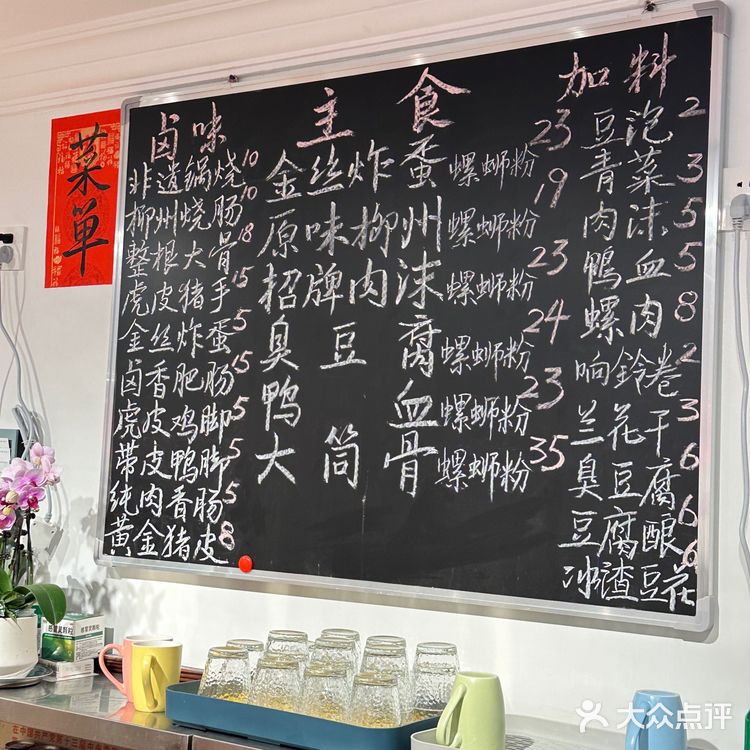 菜单
卤味
非遗锅烧 10
柳州烧肠 10
整根大骨 18
虎皮猪手 15
金丝炸蛋 5
卤香肥肠 15
虎皮鸡脚 5
带皮鸭脚 5
纯肉香肠 5
黄金猪皮 8
主食
金丝炸蛋螺蛳粉 23
原味柳州螺蛳粉 19
招牌肉沫螺蛳粉 23
臭豆腐螺蛳粉 24
鸭血螺蛳粉 23
大筒骨螺蛳粉 35
加料
豆泡 2
青菜 3
肉沫 5
鸭血 5
螺肉 8
响铃卷 2
兰花干 3
臭豆腐 6
豆腐酿 6
冰渣豆花 6
大众点评